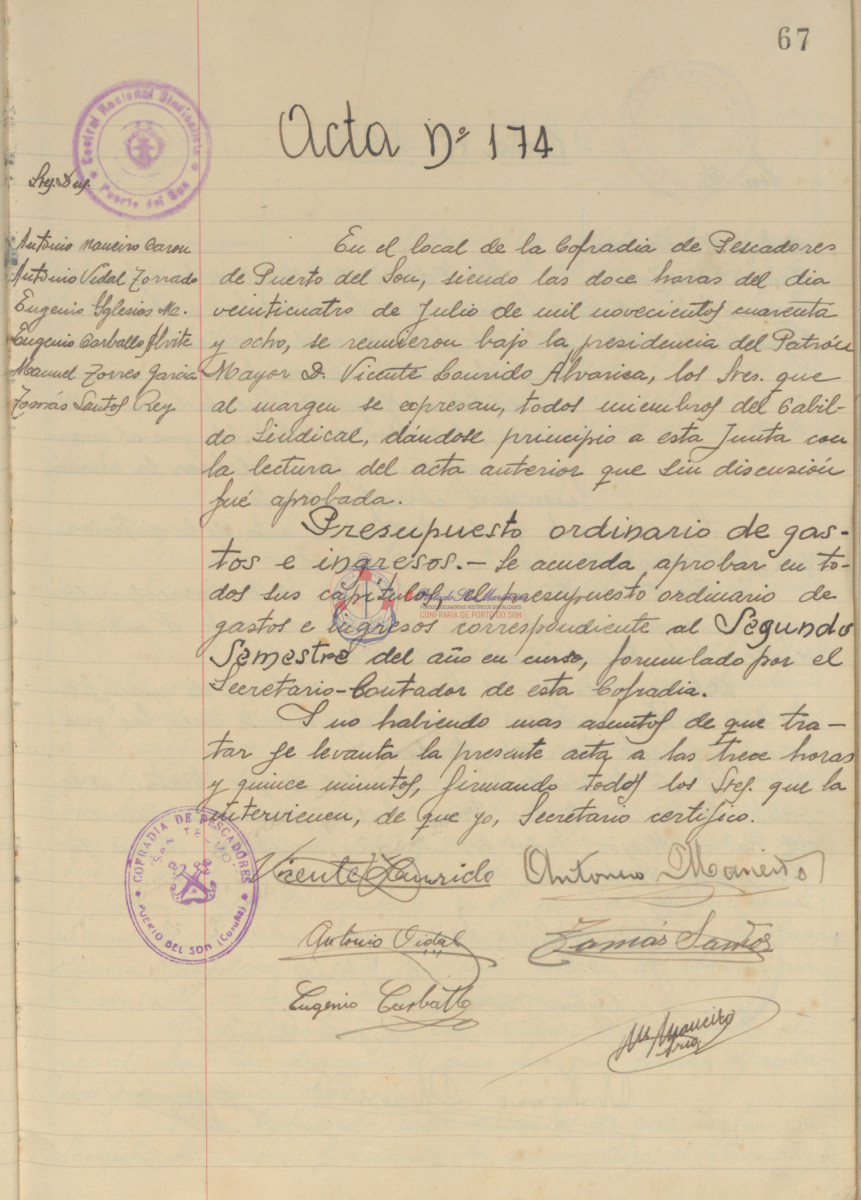 67
Acta Nº 174
Central Nacional Sindicalista
Puerto del Son
Sres. Dn.
Antonio Maneiro Caron
Antonio Vidal Torrado
Eugenio Yglesias Ma.
Eugenio Carballo Alvite
Manuel Torres Garcia
Tomás Santos Rey
En el local de la Cofradia de Pescadores
de Puerto del Son, siendo las doce horas del dia
veinticuatro de Julio de mil novecientos cuarenta
y ocho, se reunieron bajo la presidencia del Patrón
Mayor D. Vicente Lourido Alvariza, los Sres. que
al margen se expresan, todos miembros del Cabil-
do Sindical, dándose principio a esta Junta con
la lectura del acta anterior que sin discusión
fué aprobada.
Presupuesto ordinario de gas-
tos e ingresos.- Se acuerda aprobar en to-
dos sus capítulos, el presupuesto ordinario de
gastos e ingresos correspondiente al Segundo
Semestre del año en curso, formulado por el
Secretario-Contador de esta Cofradia.
Y no habiendo mas asuntos de que tra-
tar se levanta la presente acta a las trece horas
y quince minutos, firmando todos los Sres. que la
intervienen, de que yo, Secretario certifico.
CONFRARÍA DE PORTO DO SON
COFRADIA DE PESCADORES
SAN TELMO
PUERTO DEL SON (Coruña)
Vicente Lourido Antonio Maneiro
Antonio Vidal Tomás Santos
Eugenio Carballo
Ml Maneiro